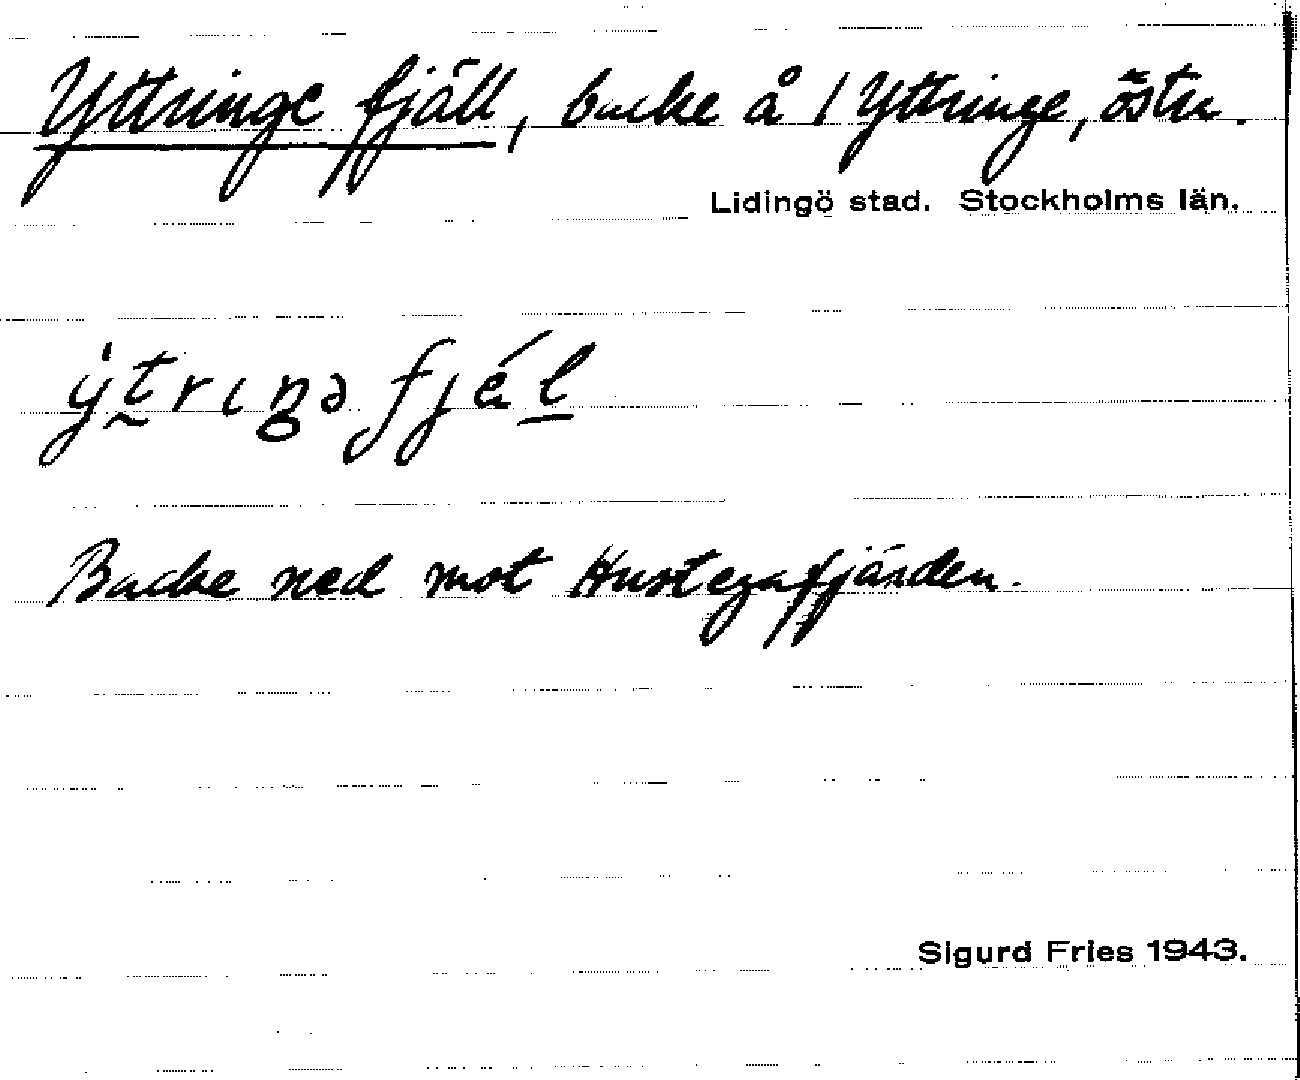 Yttringe fjäll, backe å / Yttringe, öster.
Lidingö stad. Stockholms län.
ýtrıŋə fjǽl
Backe ned mot Hustegafjärden.
Sigurd Fries 1943.